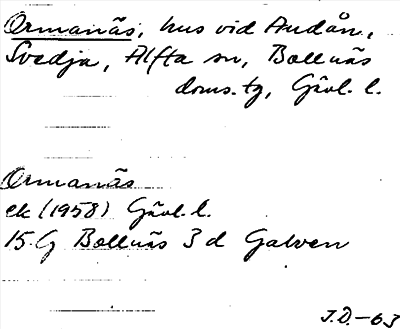 Ormanäs, hus vid Audån,
Svedja, Alfta sn, Bollnäs
doms. tg, Gävl. l.
Ormanäs
ek (1958) Gävl. l.
15 G Bollnäs 3 d Galven
J.D.-63